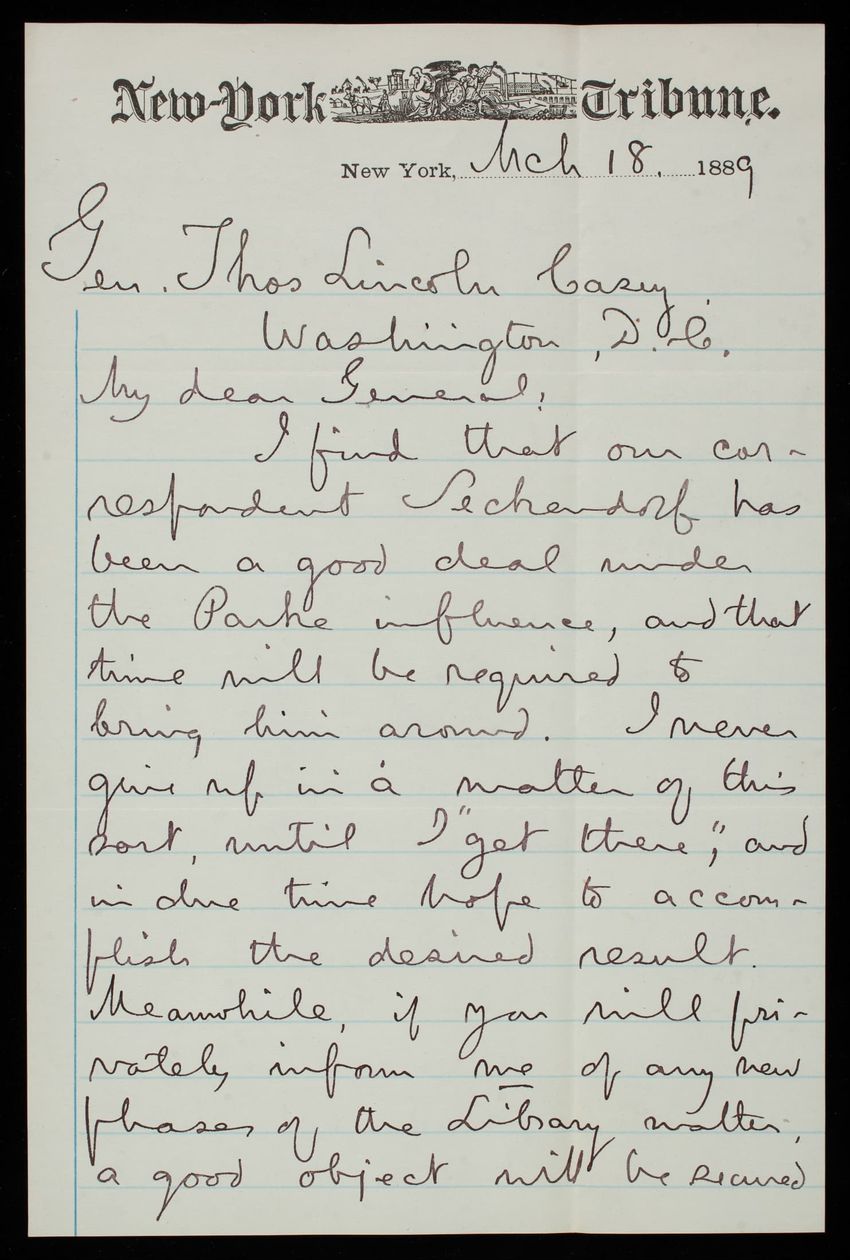 New-York Tribune.
New York, Mch 18. 1889
Gen. Thos Lincoln Casey,
Washington, D.C.
My dear General:
I find that our cor-
respondent Seckendorf has
been a good deal under
the Parke influence, and that
time will be required to
bring him around. I never
give up in a matter of this
sort, until I "get there", and
in due time hope to accom-
plish the desired result.
Meanwhile, if you will pri-
vately inform me of any new
phases of the Library matter,
a good object will be secured